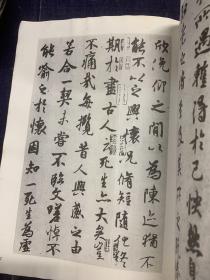 遇蹔得於己快然自
欣俛仰之間以為陳迹猶不
能不以之興懷況脩短隨化終
期於盡古人云死生亦大矣豈
不痛哉每攬昔人興感之由
若合一契未嘗不臨文嗟悼不
能喻之於懷固知一死生為虛